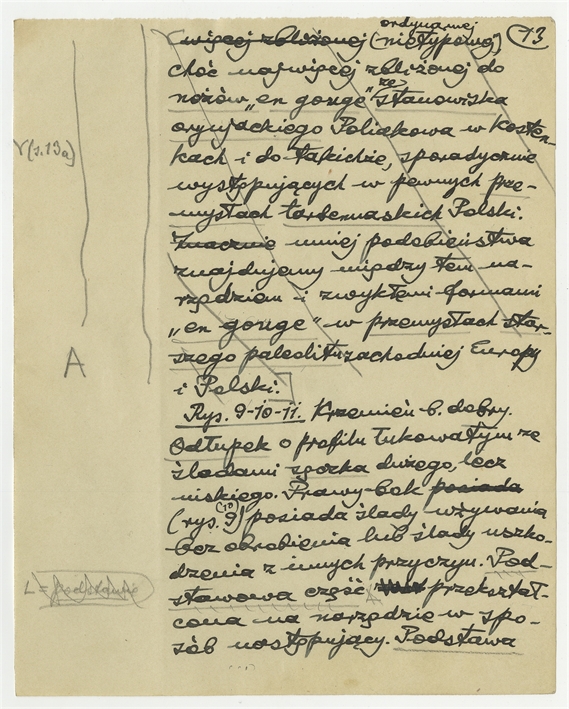 ordynarnej
13
więcej zbliżonej (nietypowej),
choć najwięcej zbliżonej do
nożów „en gouge" ze stanowiska
oryniackiego Poliakowa w Kosten-
kach i do takichże, sporadycznie
V(s.13a)
występujących w pewnych prze-
mysłach tardenuaskich Polski.
Znacznie mniej podobieństwa
znajdujemy między tem na-
rzędziem i zwykłemi formami
„en gouge" w przemysłach star-
szego paleolitu zachodniej Europy
A
i Polski.
Rys. 9-10-11. Krzemień b. dobry.
Odłupek o profilu łukowatym ze
śladami sęczka dużego, lecz
niskiego. Prawy bok posiada
(rys. 9) posiada ślady używania
bez obrobienia lub ślady uszko-
dzenia z innych przyczyn. Pod-
L = podstawie
stawowa część przekształ-
cona na narzędzie w spo-
sób następujący. Podstawa